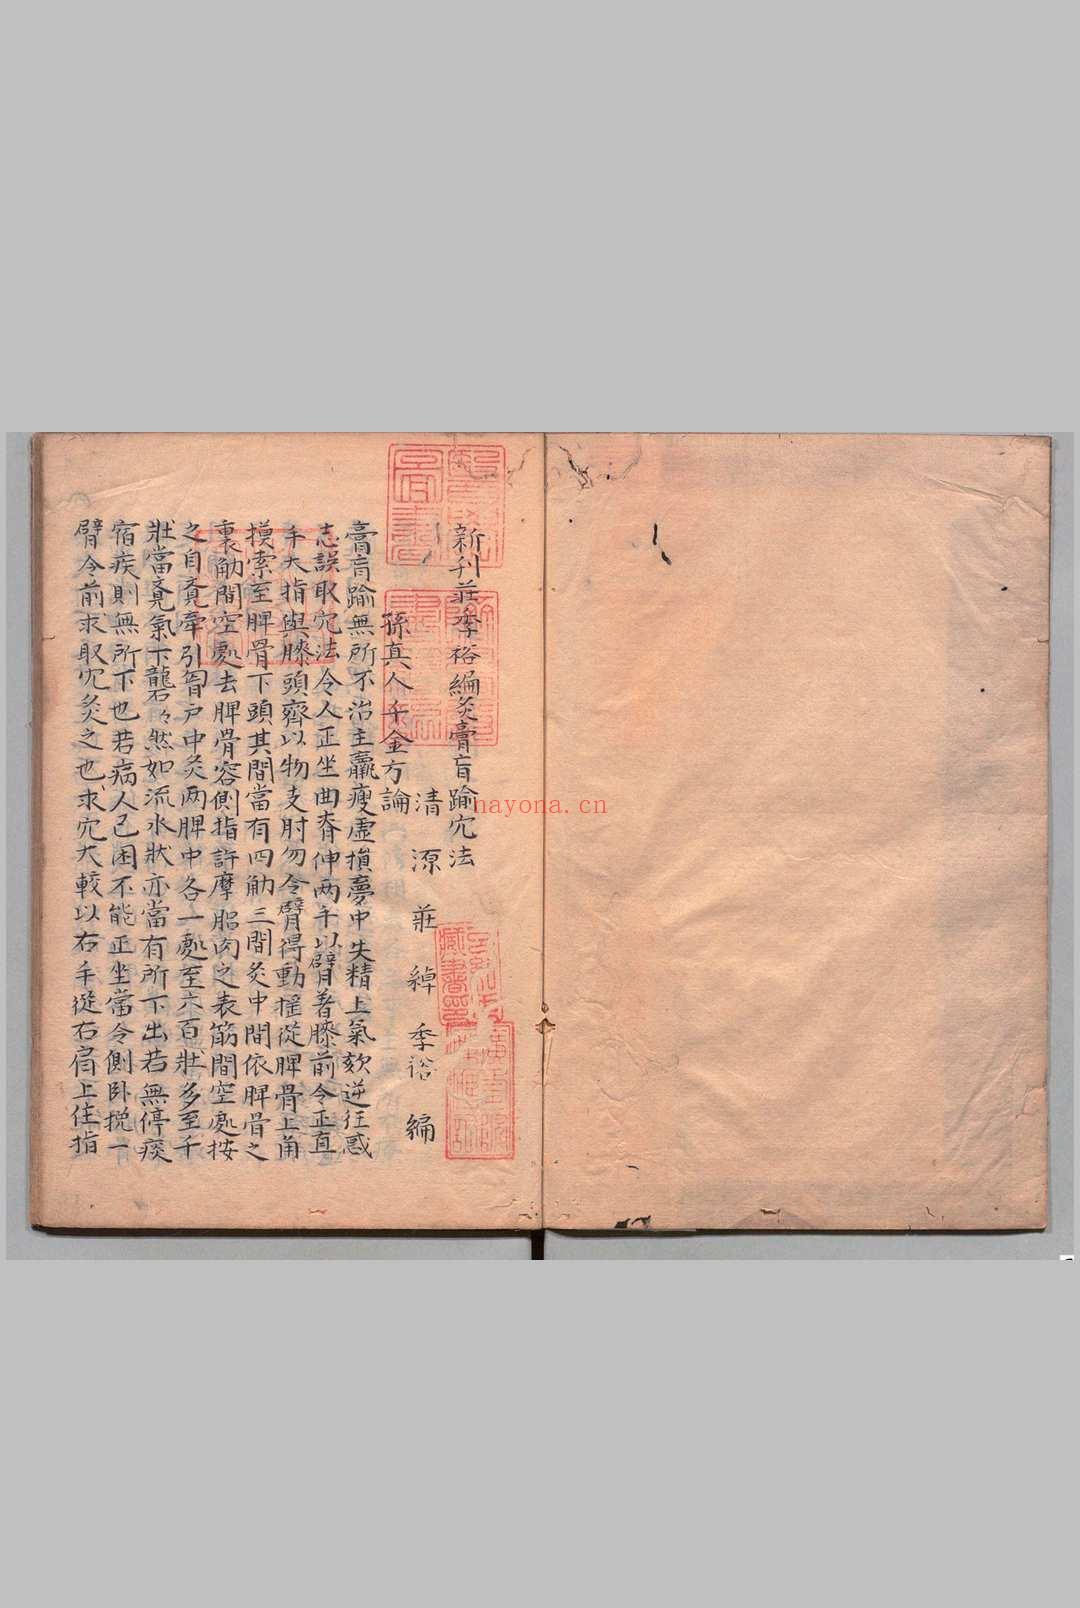 新刋莊季裕編灸膏肓腧穴法
清源莊綽季裕編
孫真人千金方論
膏肓腧無所不治主羸瘦虛損夢中失精上氣欬逆狂惑
志誤取穴法令人正坐曲脊伸兩手以臂著膝前令正直
手大指與膝頭齊以物支肘勿令臂得動揺從胛骨上角
摸索至胛骨下頭其間當有四肋三間灸中間依胛骨之
裏肋間空處去胛骨容側指許摩𦛗肉之表筋間空處按
之自覺牽引胷戸中灸兩胛中各一處至六百壯多至千
壯當覺氣下礱々然如流水狀亦當有所下出若無停痰
宿疾則無所下也若病人已困不能正坐當令側卧挽一
臂令前求取穴灸之也求穴大較以右手從右肩上住指
nayona.cn